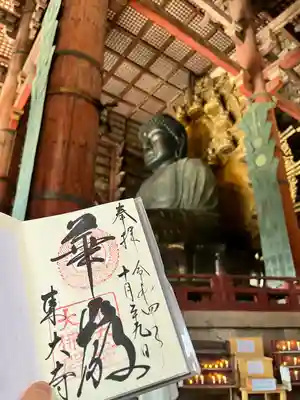 奉拝
令和四年
十月廿九日
華嚴
東大寺